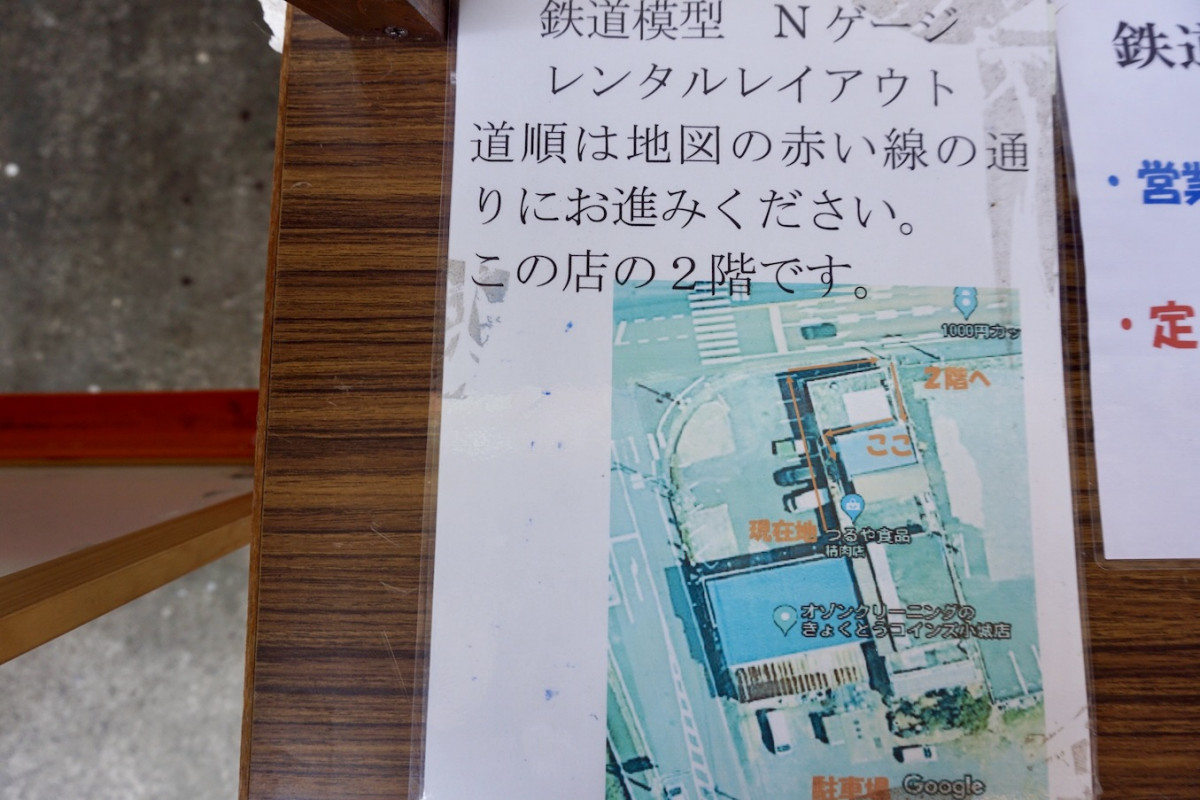 鉄道模型　Nゲージ
レンタルレイアウト
道順は地図の赤い線の通
りにお進みください。
この店の２階です。
1000円カッ
2階へ
ここ
現在地
つるや食品
精肉店
オゾンクリーニングの
きょくとうコインズ小城店
駐車場
Google
鉄道
・営業
・定